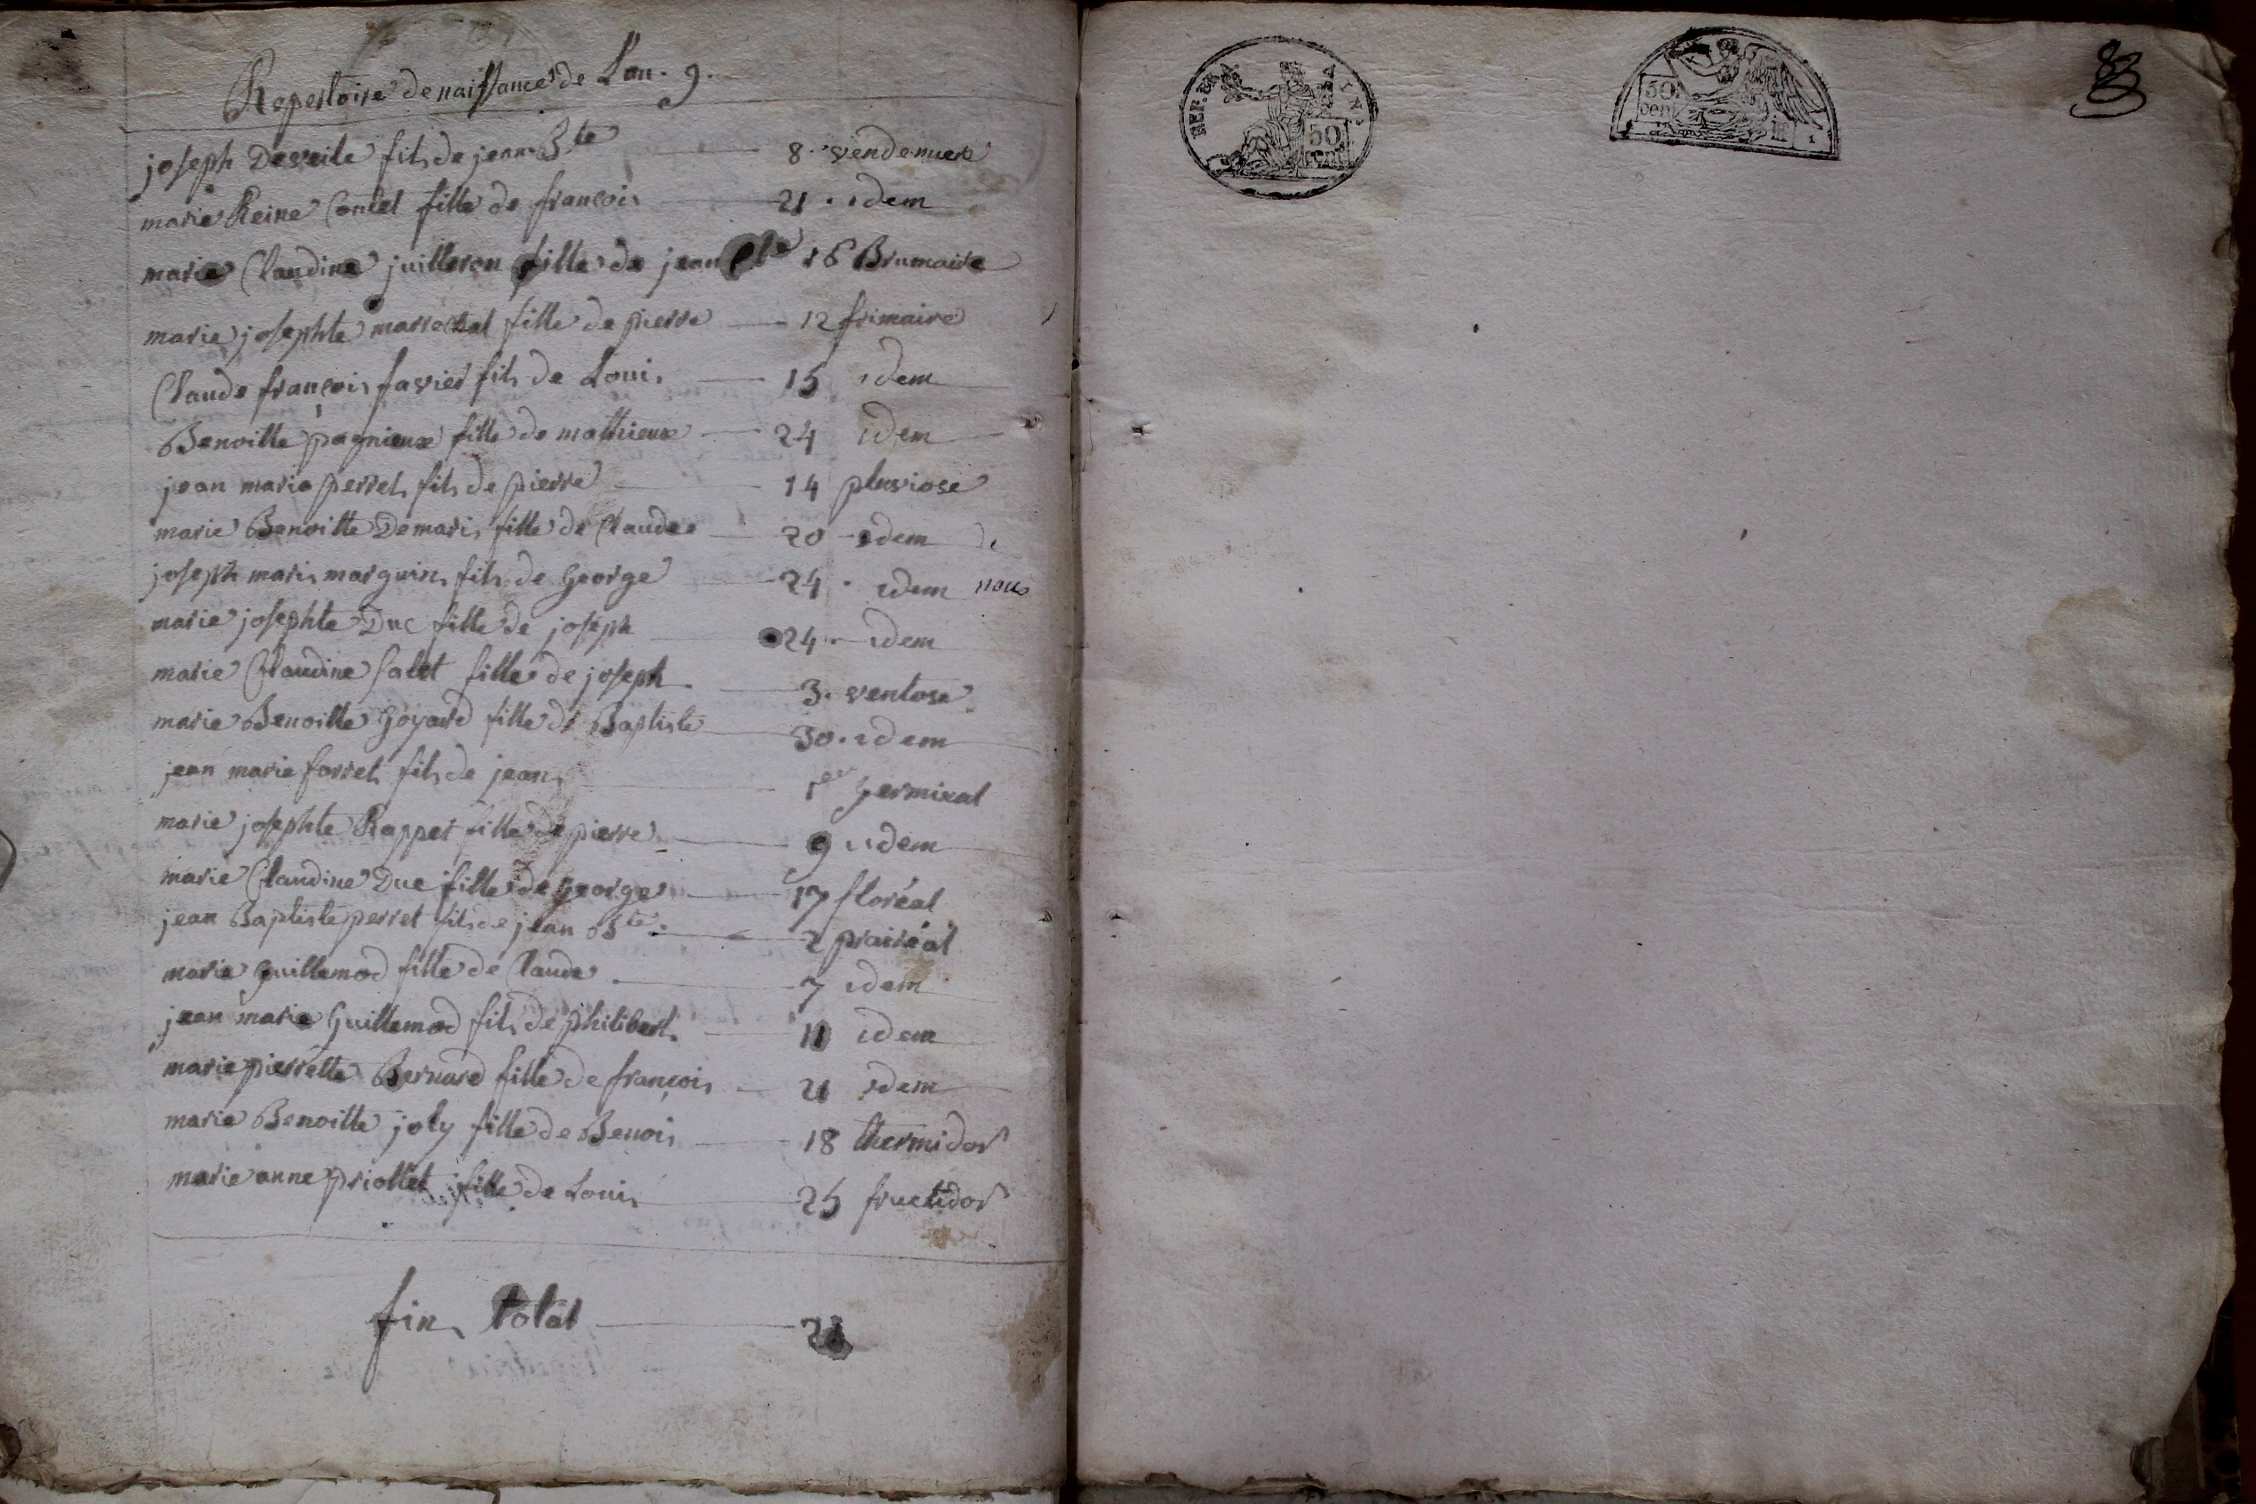 Repertoire de naissance de L'an .9.
joseph Deveile fils de jean Bte 8. vendemiere
marie Reine Contet fille de françois 21. idem
marie Claudine juilleron fille de jean Cl 16 Brumaire
marie josephte marrechal fille de pierre 12 frimaire
Claude françois favier fils de Louis 15 idem
Benoitte pagnieux fille de mathieux 24 idem
jean marie perret fils de pierre 14 pluviose
marie Benoitte Demaris fille de Claude 20 idem
joseph marie marguin fils de George 24. idem nous
marie josephte Duc fille de joseph 24 idem
marie Claudine Salet fille de joseph 3. ventose
marie Benoitte Goyard fille de Baptiste 30. idem
jean marie forret fils de jean 1er germinal
marie josephte Rappet fille de pierre 9 idem
marie Claudine Duc fille de George 17 floréal
jean Baptiste perret fils de jean Bte. 2 prairéal
marie Guillemod fille de Claude 7 idem
jean marie Guillemod fils de philibert. 11 idem
marie pierrette Bernard fille de françois 21 idem
marie Benoitte joly fille de Benois 18 thermidor
marie anne priollet fille de Louis 25 fructidor
fin total 21
REP. FR.
50
50
cen